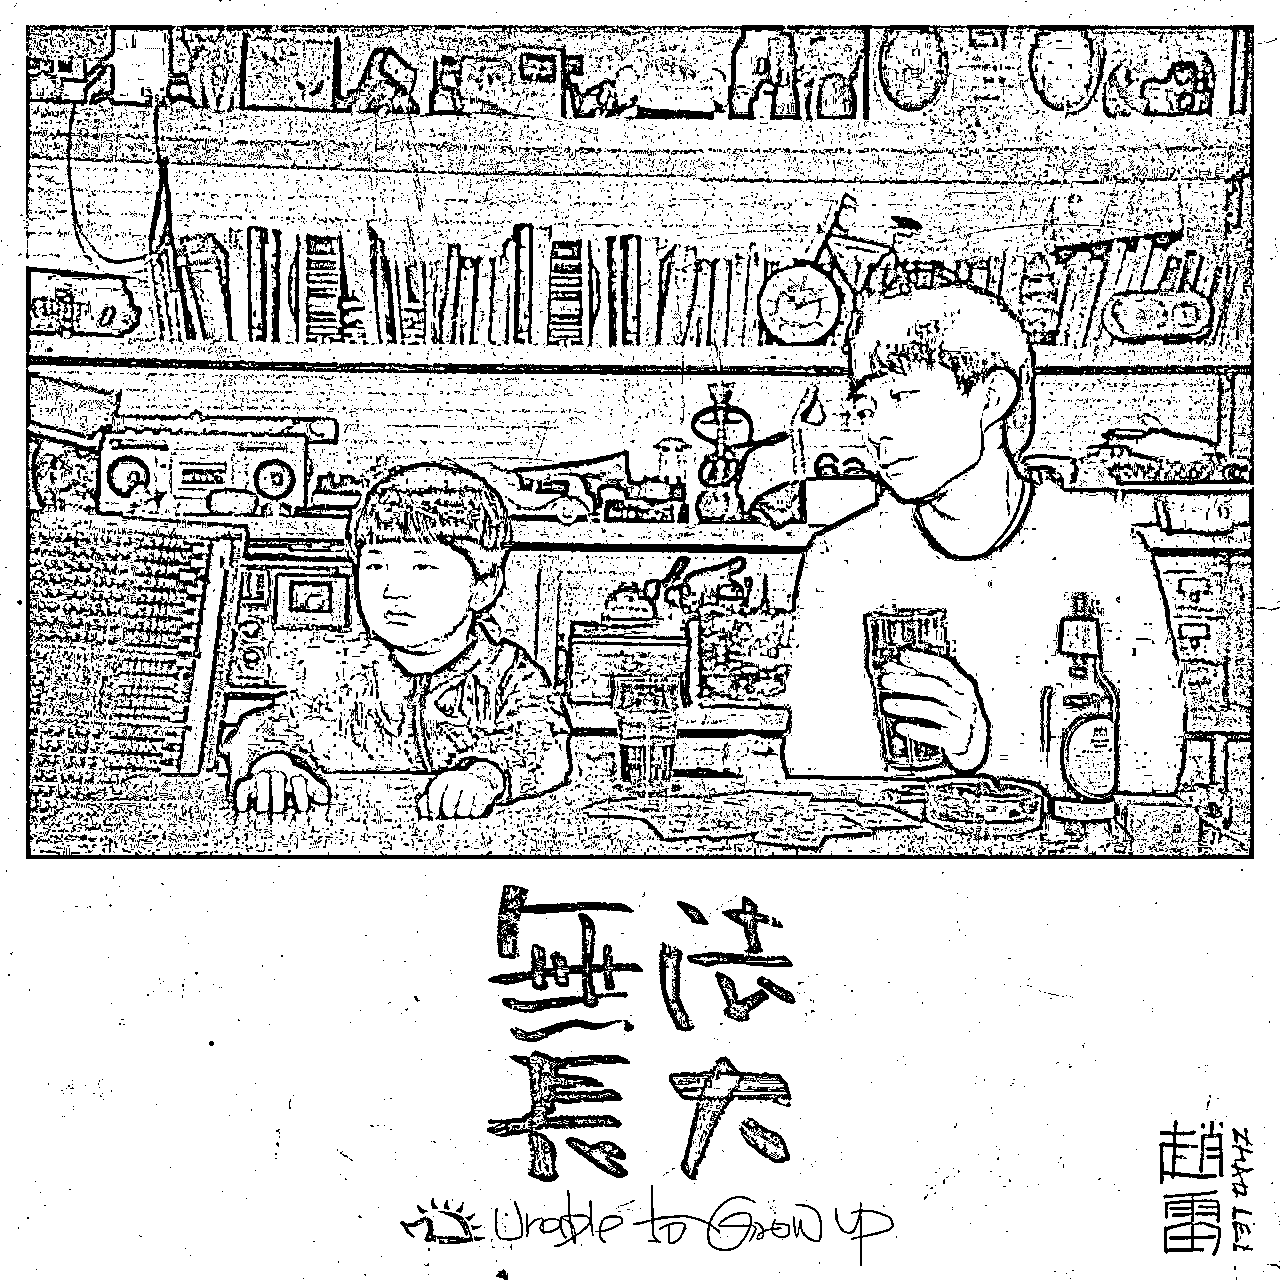 無法
長大
Unable to Grow up
趙雷
ZHAO LEI